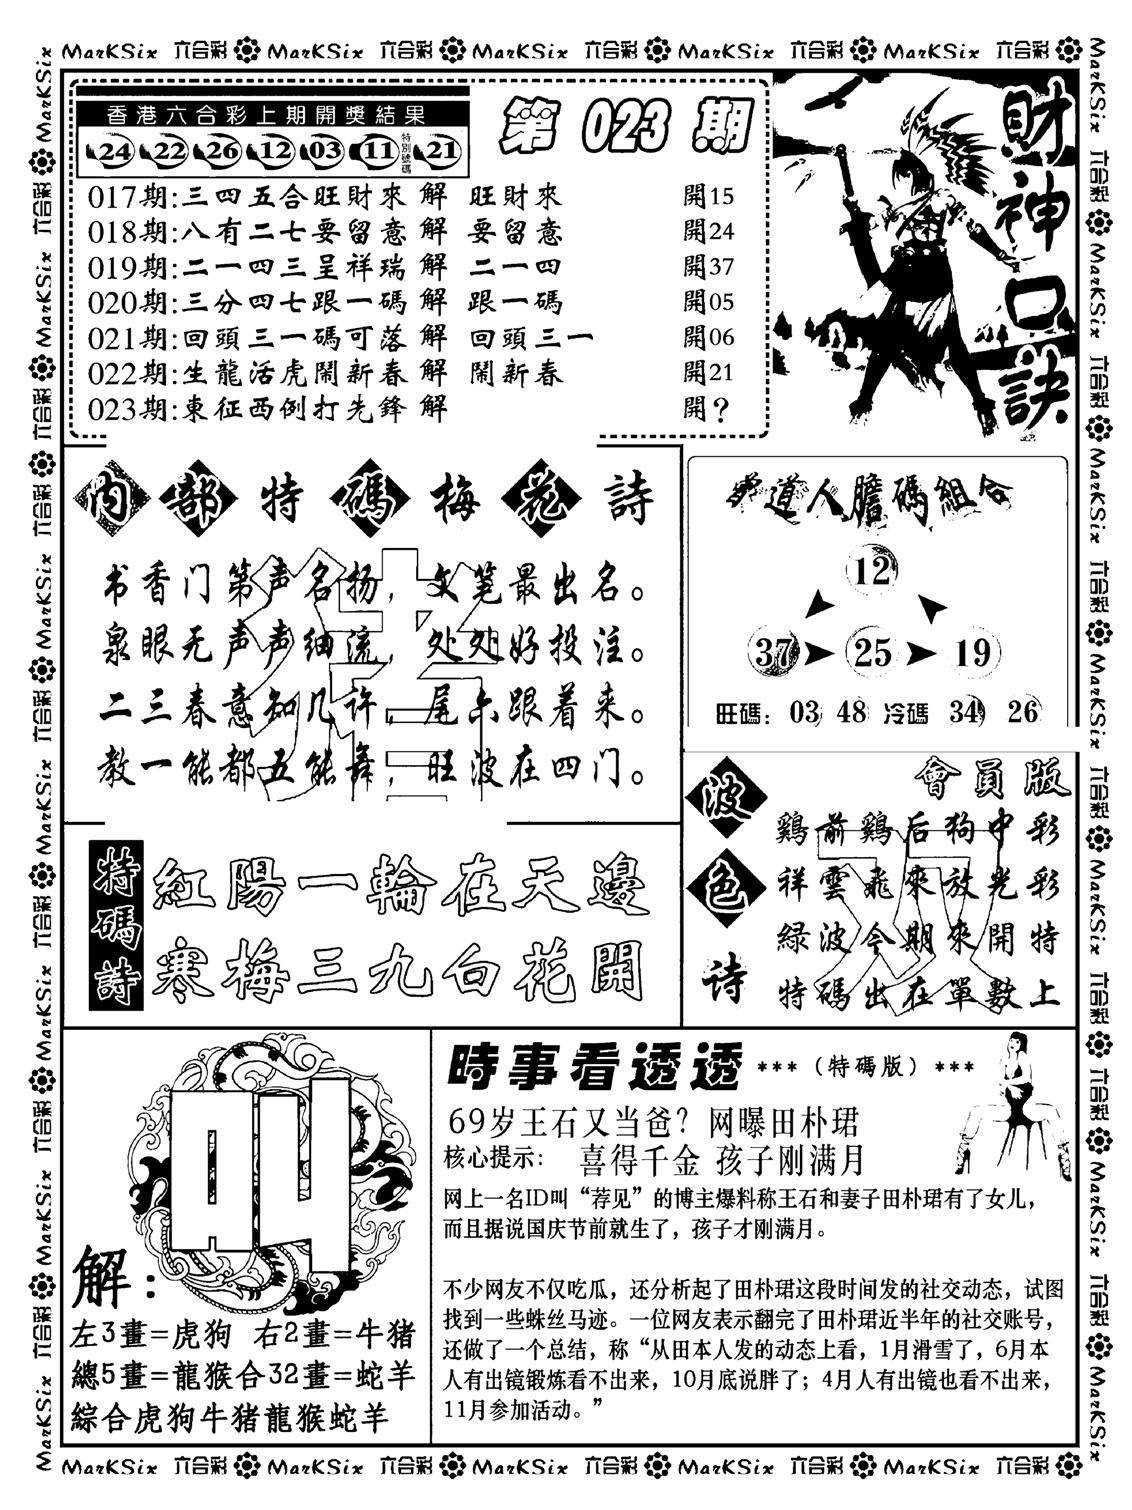 MarKSix 六合彩 MarKSix 六合彩 MarKSix 六合彩 MarKSix 六合彩 MarKSix 六合彩
香港六合彩上期開獎結果
24 22 26 12 03 11 特別號碼 21
第 023 期
財神口訣
017期:三四五合旺財來 解 旺財來 開15
018期:八有二七要留意 解 要留意 開24
019期:二一四三呈祥瑞 解 二一四 開37
020期:三分四七跟一碼 解 跟一碼 開05
021期:回頭三一碼可落 解 回頭三一 開06
022期:生龍活虎鬧新春 解 鬧新春 開21
023期:東征西例打先鋒 解 開?
内部特碼梅花詩
书香门第声名扬，文笔最出名。
泉眼无声声细流，处处好投注。
二三春意知几许，尾六跟着来。
教一能都五能舞，旺波在四门。
猪
道人膽碼組合
12
37 25 19
旺碼: 03 48 冷碼 34 26
特碼詩
紅陽一輪在天邊
寒梅三九白花開
波色诗
會員版
鷄前鷄后狗中彩
祥雲飛來放光彩
緑波今期來開特
特碼出在單數上
双
叫
解:
左3畫=虎狗 右2畫=牛猪
總5畫=龍猴合32畫=蛇羊
綜合虎狗牛猪龍猴蛇羊
時事看透透 ***(特碼版)***
69岁王石又当爸？网曝田朴珺
核心提示： 喜得千金 孩子刚满月
网上一名ID叫“荐见”的博主爆料称王石和妻子田朴珺有了女儿，
而且据说国庆节前就生了，孩子才刚满月。
不少网友不仅吃瓜，还分析起了田朴珺这段时间发的社交动态，试图
找到一些蛛丝马迹。一位网友表示翻完了田朴珺近半年的社交账号，
还做了一个总结，称“从田本人发的动态上看，1月滑雪了，6月本
人有出镜锻炼看不出来，10月底说胖了；4月人有出镜也看不出来，
11月参加活动。”
MarKSix 六合彩 MarKSix 六合彩 MarKSix 六合彩 MarKSix 六合彩 MarKSix 六合彩